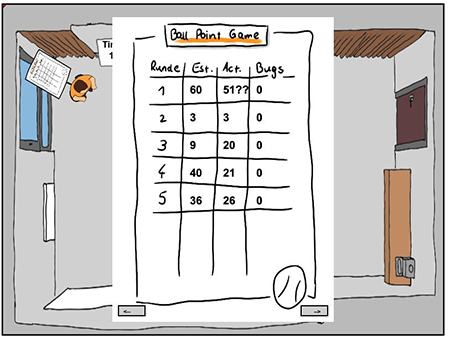 Ball Point Game
Runde Est. Act. Bugs
1 60 51?? 0
2 3 3 0
3 9 20 0
4 40 21 0
5 36 26 0